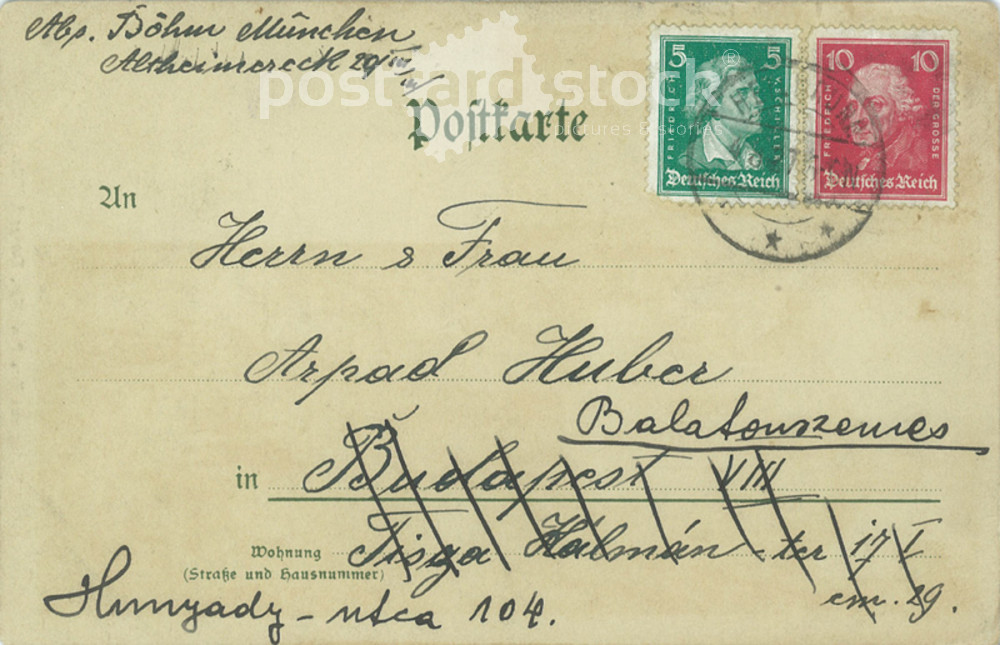 Abs. Böhm München
Altheimereck 20 III/IV
postcardstock®
pictures & stories
Postkarte
5 5
FRIEDRICH V. SCHILLER
Deutsches Reich
10 10
FRIEDRICH DER GROSSE
Deutsches Reich
An
Herrn & Frau
Arpad Huber
Balatonszemes
in Budapest VIII
Wohnung
(Straße und Hausnummer)
Tisza Kálmán-ter 17 I
em. 29.
Hunyady-utca 104.